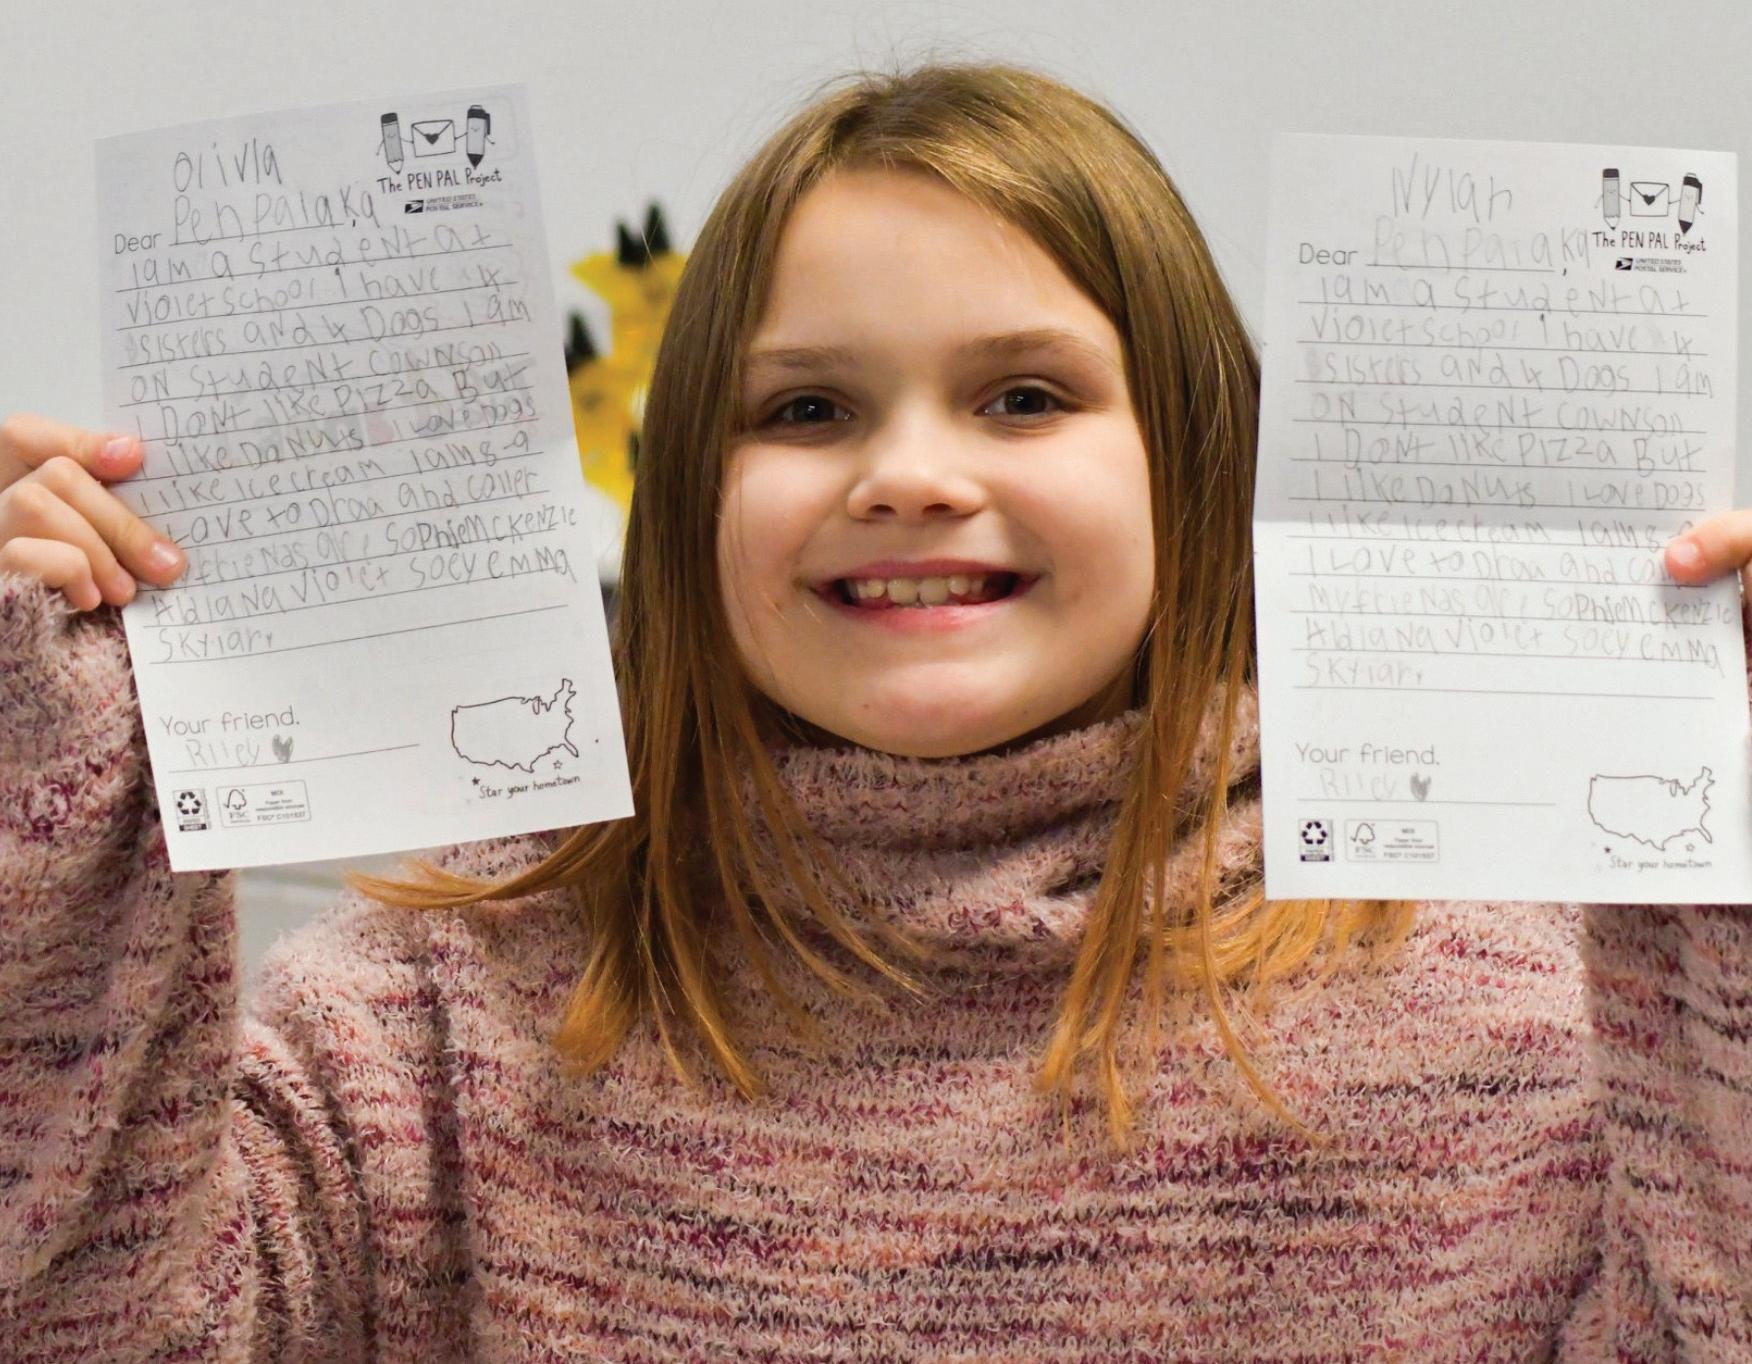 Olivia
The PEN PAL Project
UNITED STATES
POSTAL SERVICE
Dear Penpalaka,
I am a Student at
violet School I have 4
sisters and 4 Dogs I am
ON StudeNt cownson
I DoNt like Pizza But
I like DoNuts I Love Dogs
I like Icecream I am
Love to Draa and coller
My frieNds are, Sophie McKenzie
violet Soey emma
Skylar,
Your friend,
Riley
Star your hometown
FSC
MIX
Paper from
responsible sources
FSC® C101537
Nylah
The PEN PAL Project
UNITED STATES
POSTAL SERVICE
Dear Penpalaka,
I am a Student at
violet School I have 4
sisters and 4 Dogs I am
ON StudeNt cownson
I DoNt like Pizza But
I like DoNuts I Love Dogs
I like Icecream I am
I Love to Draa and
My frieNds are, Sophie McKenzie
violet Soey emma
Skylar,
Your friend,
Riley
Star your hometown
FSC
MIX
FSC® C101537